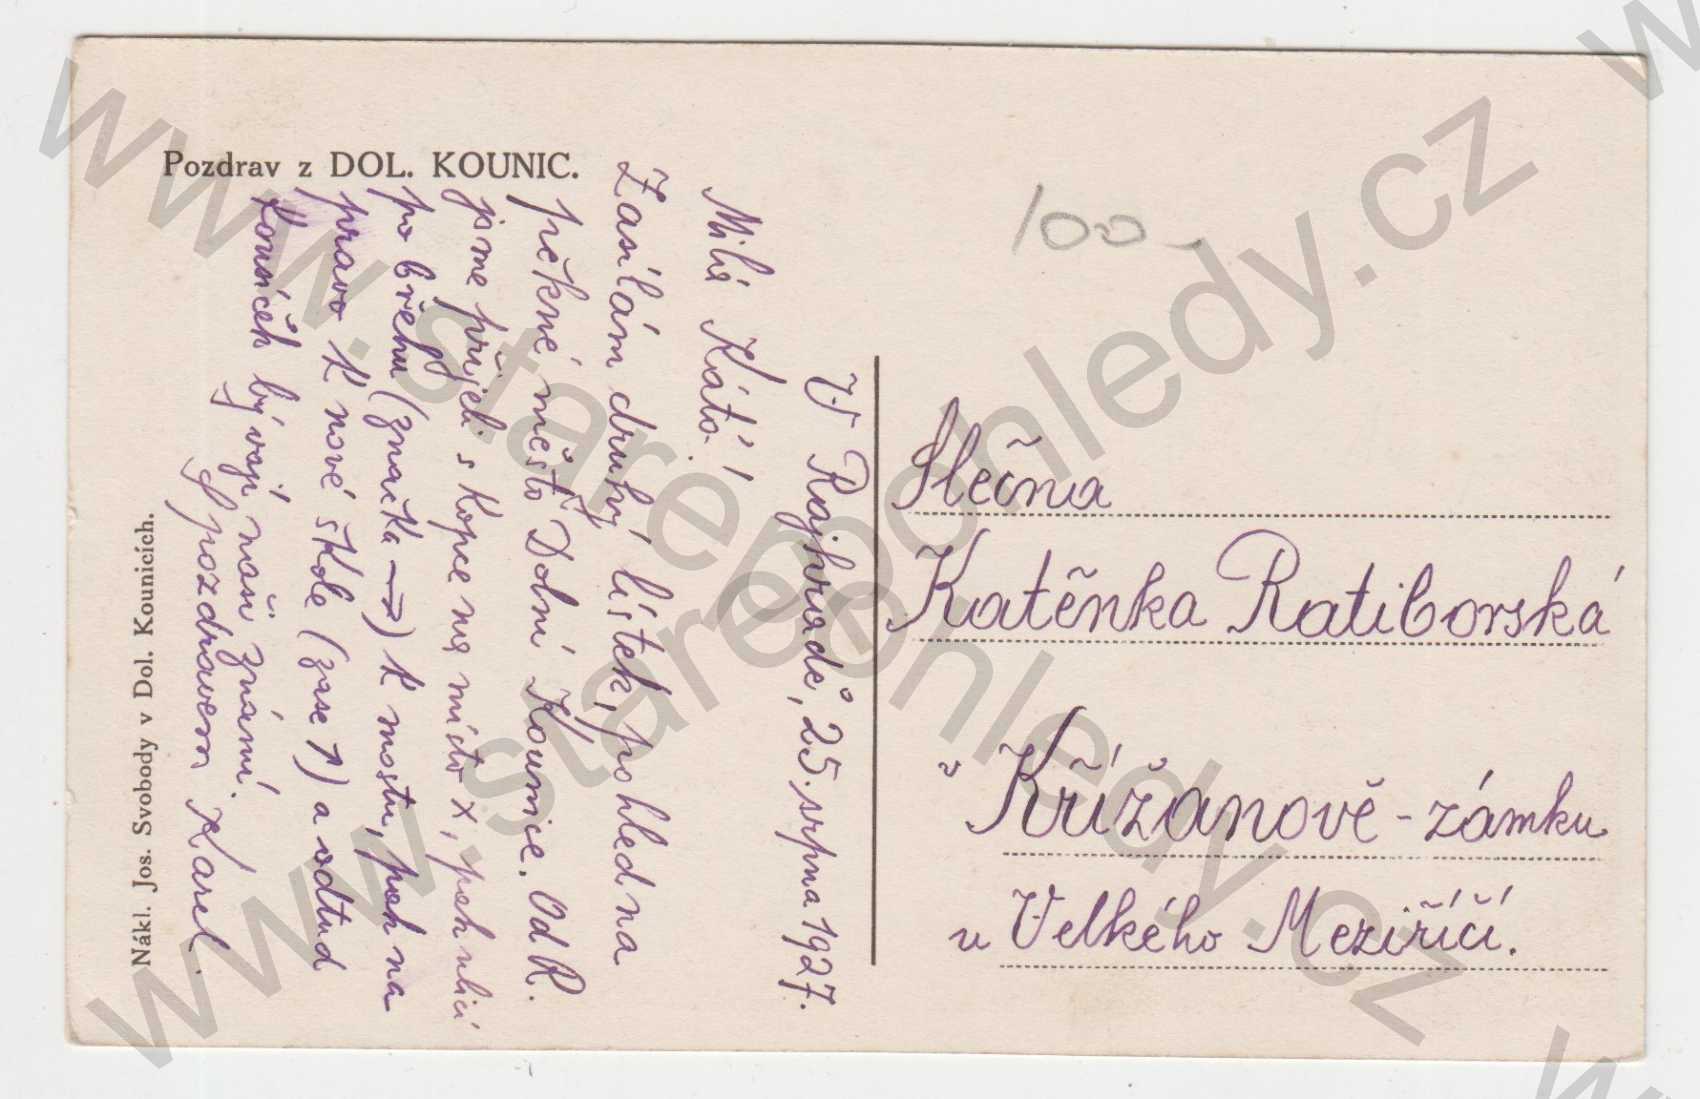 Pozdrav z DOL. KOUNIC.
Nákl. Jos. Svobody v Dol. Kounicích.
V Rajhradě, 25. srpna 1927.
Milá Káťo!
Zasílám druhý lístek, pohled na
pěkné město Dolní Kounice. Od R.
jsme přijeli s kopce na místo x, pak ulicí
po břehu (značka →) k mostu, pak na
pravo k nové škole (zase ↑) a odtud
Kounicích bývají naši známí.
S pozdravem Karel.
100-
Slečna
Katěnka Ratiborská
v Křižanově - zámku
u Velkého Meziříčí.
www.starepohledy.cz
www.starepohledy.cz